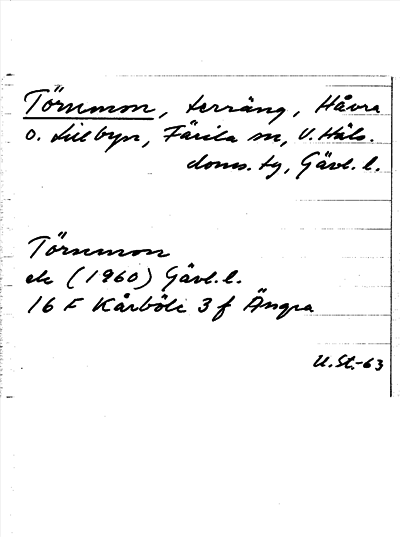 Törnmon, terräng, Håvra
o. Lillbyn, Färila sn, V. Häls.
doms. tg, Gävl. l.
Törnmon
ek (1960) Gävl. l.
16 F Kårböle 3 f Ängra
U.St.-63